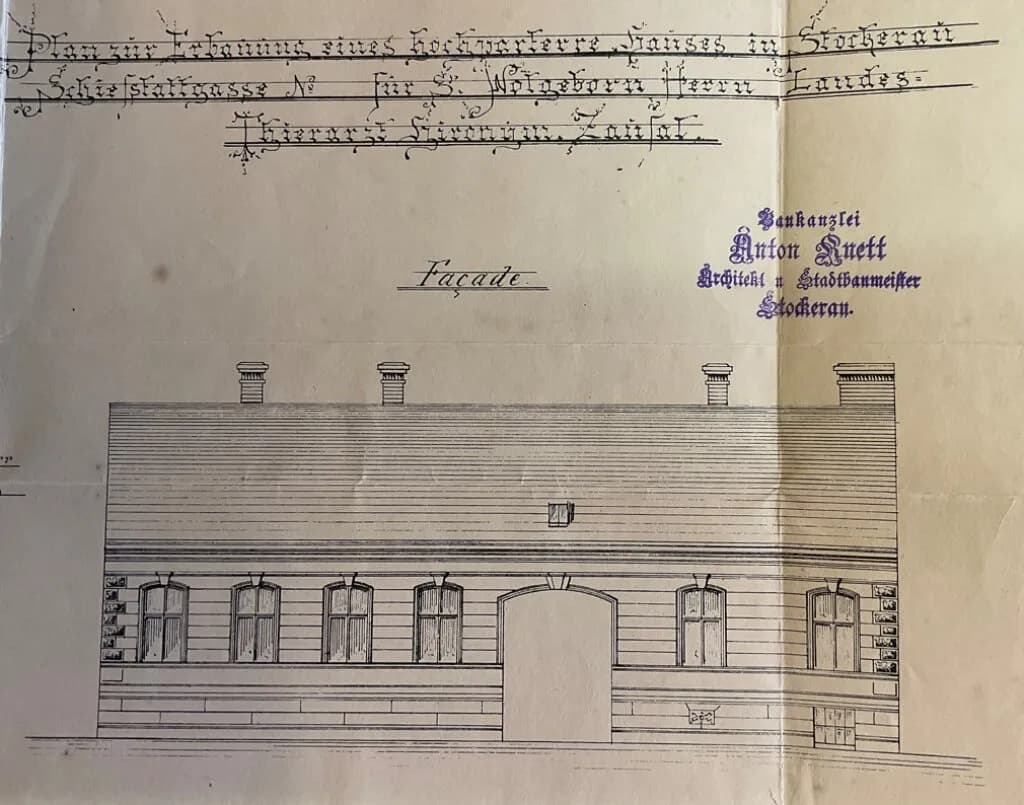 Plan zur Erbauung eines hochparterre Hauses in Stockerau
Schießstattgasse No für S. Wolgeborn Herrn Landes-
Thierarzt Hironym. Zaufal.
Baukanzlei
Anton Knett
Architekt u Stadtbaumeister
Stockerau.
Façade.